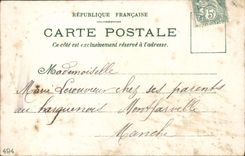 RÉPUBLIQUE FRANÇAISE
CARTE POSTALE
Ce côté est exclusivement réservé à l'adresse.
Mademoiselle
Marie Lecouveur chez ses parents
au Montfarville
Manche
494